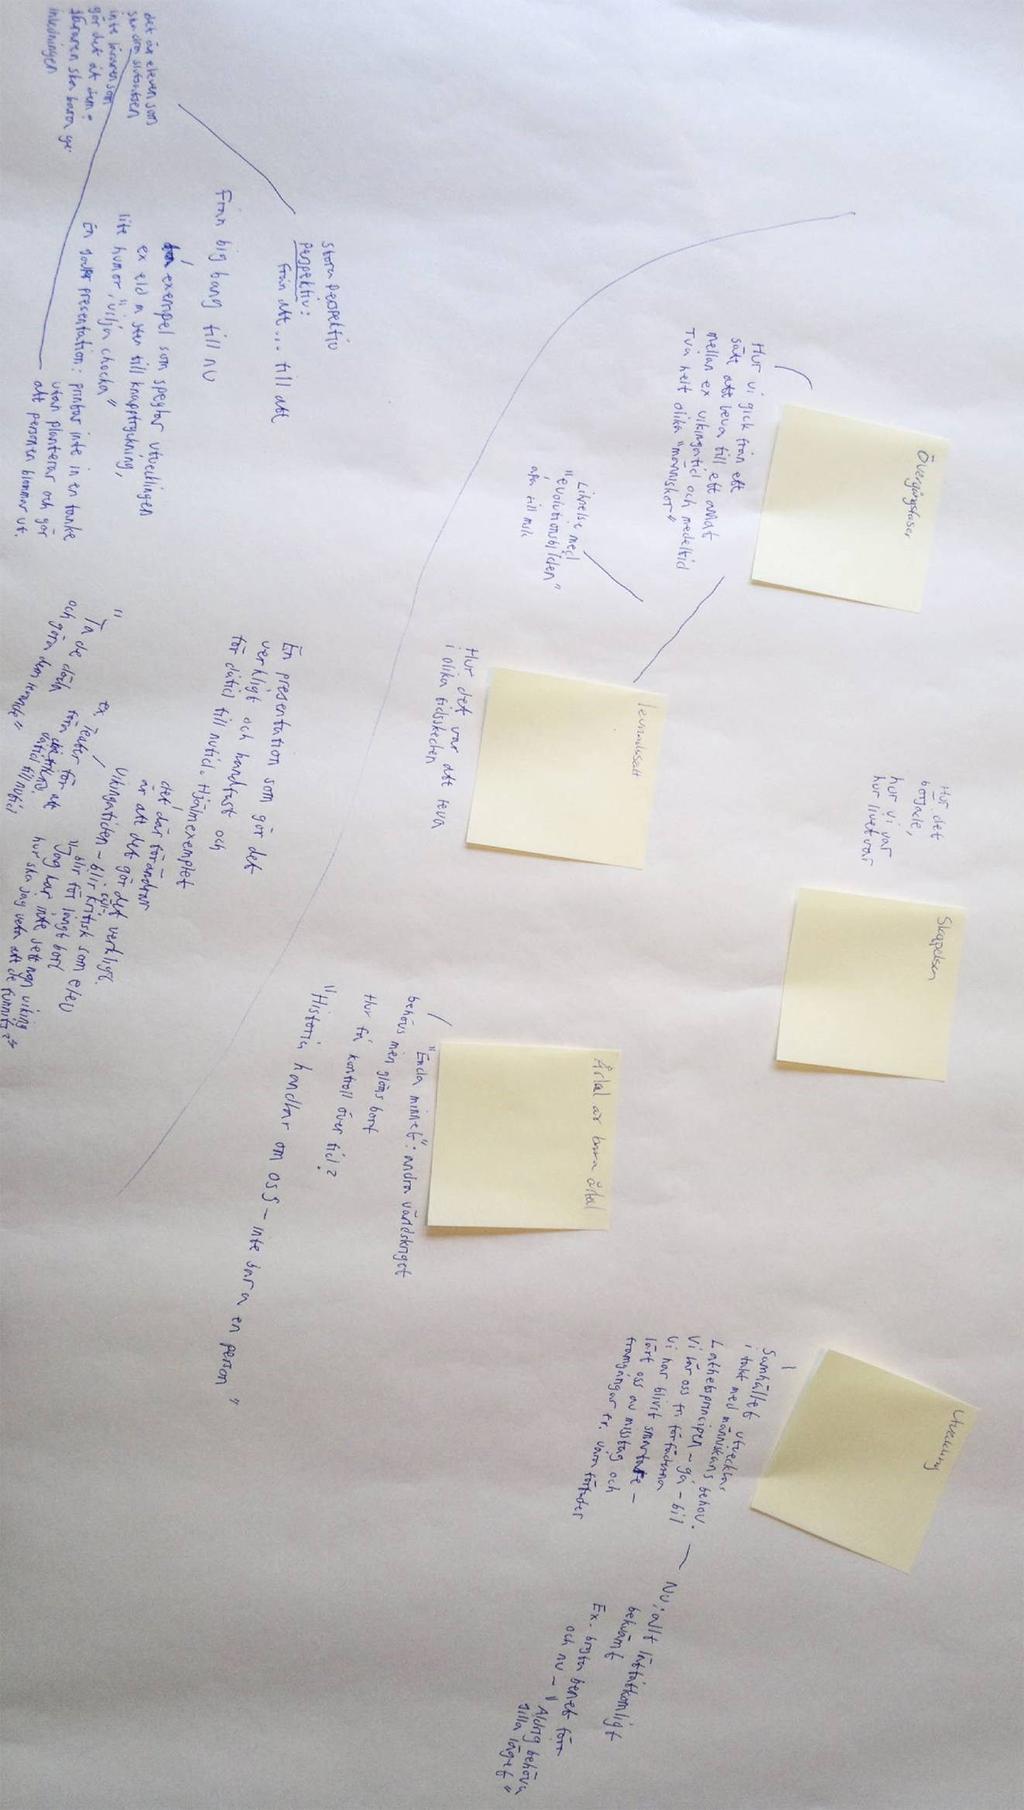 Övergångsfaser
Hur vi gick från ett
sätt att leva till ett annat
mellan ex vikingatid och medeltid
Två helt olika "människor"
Skapelsen
Hur det
började,
hur vi var
hur livet var
Utveckling
Samhället utvecklas
i takt med människans behov.
Lathetsprincipen - gå - bil
Vi lär oss fr. förfäderna
Vi har blivit smartare -
lärt oss av misstag och
framgångar fr. våra förfäder
Nu; allt lättåtkomligt
bekvämt
Ex. bryta benet förr
och nu - "Aldrig behöva
gilla läget"
levnadssätt
Hur det var att leva
i olika tidsskeden
Liknelse med
"evolutionsbilden"
apa till
Årtal är bara årtal
"Enda minnet": andra världskriget
behövs men glöms bort
Hur få kontroll över tid?
"Historia handlar om oss - inte bara en person"
Stora perspektiv
perspektiv:
från att... till att
Från big bang till nu
exempel som speglar utvecklingen
ex eld m sten till knapptryckning,
lite humor, "vilja chocka"
En presentation: inte in en tanke
utan planterar och gör
att personen blommar ut.
det är eleven som
ska dra slutsatsen
inte läraren som
gör det åt dem.
läraren ska bara ge
inledningen
En presentation som gör det
verkligt och handfast och
för dåtid till nutid. Hjälmexemplet
det där förändrar
är att det gör det verkligt.
ex
Vikingatiden - blir kritisk som elev
"blir för långt bort
Jag har inte sett ngn viking
hur ska jag veta att de funnits?"
"Ta de döda från dåtid till nutid
och göra dem levande"